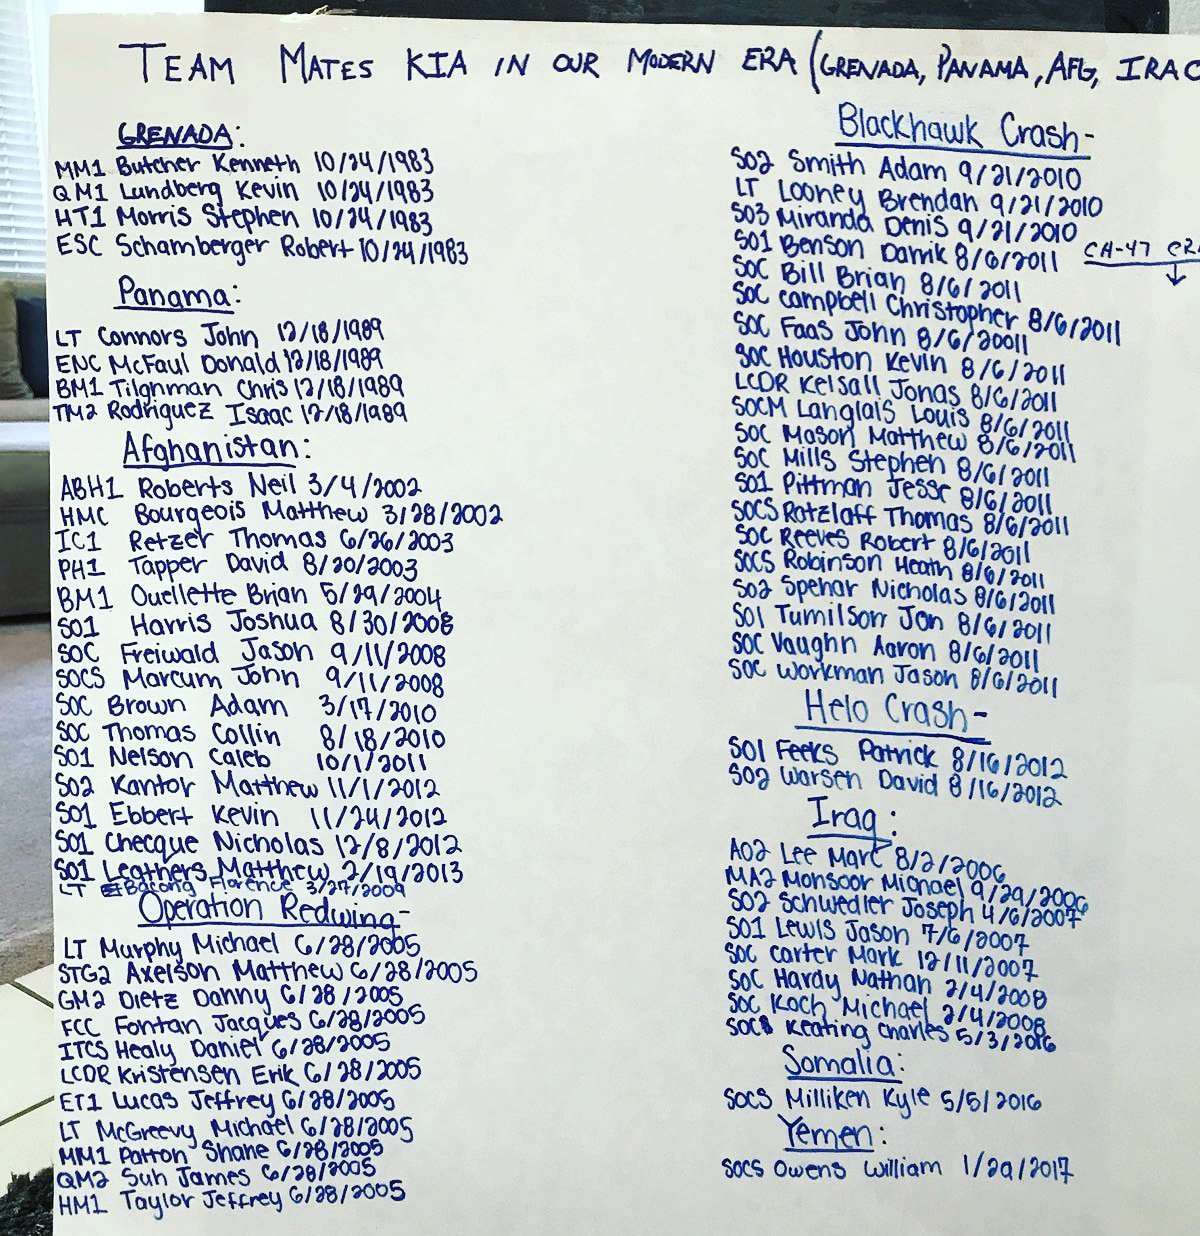 TEAM MATES KIA IN OUR MODERN ERA (GRENADA, PANAMA, AFG, IRAQ
GRENADA:
MM1 Butcher Kenneth 10/24/1983
QM1 Lundberg Kevin 10/24/1983
HT1 Morris Stephen 10/24/1983
ESC Schamberger Robert 10/24/1983
Panama:
LT Connors John 12/18/1989
ENC McFaul Donald 12/18/1989
BM1 Tilghman Chris 12/18/1989
TM2 Rodriguez Isaac 12/18/1989
Afghanistan:
ABH1 Roberts Neil 3/4/2002
HMC Bourgeois Matthew 3/28/2002
IC1 Retzer Thomas 6/26/2003
PH1 Tapper David 8/20/2003
BM1 Ouellette Brian 5/29/2004
SO1 Harris Joshua 8/30/2008
SOC Freiwald Jason 9/11/2008
SOCS Marcum John 9/11/2008
SOC Brown Adam 3/17/2010
SOC Thomas Collin 8/18/2010
SO1 Nelson Caleb 10/1/2011
SO2 Kantor Matthew 11/1/2012
SO1 Ebbert Kevin 11/24/2012
SO1 Checque Nicholas 12/8/2012
SO1 Leathers Matthew 2/19/2013
LT Bacong Florence 3/27/2009
Operation Redwing-
LT Murphy Michael 6/28/2005
STG2 Axelson Matthew 6/28/2005
GM2 Dietz Danny 6/28/2005
FCC Fontan Jacques 6/28/2005
ITCS Healy Daniel 6/28/2005
LCDR Kristensen Erik 6/28/2005
ET1 Lucas Jeffrey 6/28/2005
LT McGreevy Michael 6/28/2005
MM1 Patton Shane 6/28/2005
QM2 Suh James 6/28/2005
HM1 Taylor Jeffrey 6/28/2005
Blackhawk Crash-
SO2 Smith Adam 9/21/2010
LT Looney Brendan 9/21/2010
SO3 Miranda Denis 9/21/2010
SO1 Benson Darrik 8/6/2011 CH-47 CRA
SOC Bill Brian 8/6/2011
SOC Campbell Christopher 8/6/2011
SOC Faas John 8/6/20011
SOC Houston Kevin 8/6/2011
LCDR Kelsall Jonas 8/6/2011
SOCM Langlais Louis 8/6/2011
SOC Mason Matthew 8/6/2011
SOC Mills Stephen 8/6/2011
SO1 Pittman Jesse 8/6/2011
SOCS Ratzlaff Thomas 8/6/2011
SOC Reeves Robert 8/6/2011
SOCS Robinson Heath 8/6/2011
SO2 Spehar Nicholas 8/6/2011
SO1 Tumilson Jon 8/6/2011
SOC Vaughn Aaron 8/6/2011
SOC Workman Jason 8/6/2011
Helo Crash-
SO1 Feeks Patrick 8/16/2012
SO2 Warsen David 8/16/2012
Iraq:
AO2 Lee Marc 8/2/2006
MA2 Monsoor Michael 9/29/2006
SO2 Schwedler Joseph 4/6/2007
SO1 Lewis Jason 7/6/2007
SOC Carter Mark 12/11/2007
SOC Hardy Nathan 2/4/2008
SOC Koch Michael 2/4/2008
SOCS Keating Charles 5/3/2016
Somalia:
SOCS Milliken Kyle 5/5/2016
Yemen:
SOCS Owens William 1/29/2017